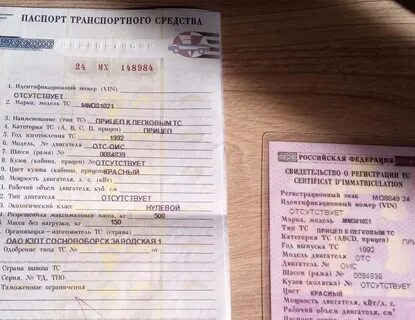 ПАСПОРТ ТРАНСПОРТНОГО СРЕДСТВА
24 МХ 148984
1. Идентификационный номер (VIN)
ОТСУТСТВУЕТ
2. Марка, модель ТС ММЗ81021
3. Наименование (тип ТС) ПРИЦЕП К ЛЕГКОВЫМ ТС
4. Категория ТС (А, В, С, D, прицеп) ПРИЦЕП
5. Год изготовления ТС 1992
6. Модель, № двигателя ОТС-ОИС
7. Шасси (рама) № 0084839
8. Кузов (кабина, прицеп) № ОТСУТСТВУЕТ
9. Цвет кузова (кабины, прицепа) КРАСНЫЙ
Мощность двигателя, л. с. (кВт)
Рабочий объем двигателя, куб. см
Тип двигателя ОТСУТСТВУЕТ
Экологический класс НУЛЕВОЙ
Разрешенная максимальная масса, кг 500
Масса без нагрузки, кг 150
Организация-изготовитель ТС (страна)
ОАО КЗПТ СОСНОВОБОРСК ЗАВОДСКАЯ 1
Одобрение типа ТС №
Страна вывоза ТС
Серия, № ТД, ТПО
Таможенные ограничения
РОССИЙСКАЯ ФЕДЕРАЦИЯ
СВИДЕТЕЛЬСТВО О РЕГИСТРАЦИИ ТС
CERTIFICAT D'IMMATRICULATION
Регистрационный знак 24
Идентификационный номер
ОТСУТСТВУЕТ
Марка, модель ММЗ81021
Тип ТС ПРИЦЕП К ЛЕГКОВЫМ
Категория ТС (ABCD, прицеп)
Год выпуска ТС 1992
Модель двигателя ОТС
№ двигателя ОИС
Шасси (рама) № 0084839
Кузов (коляска) № ОТСУТСТВУЕТ
Цвет КРАСНЫЙ
Мощность двигателя, кВт/л.
Рабочий объем двигателя